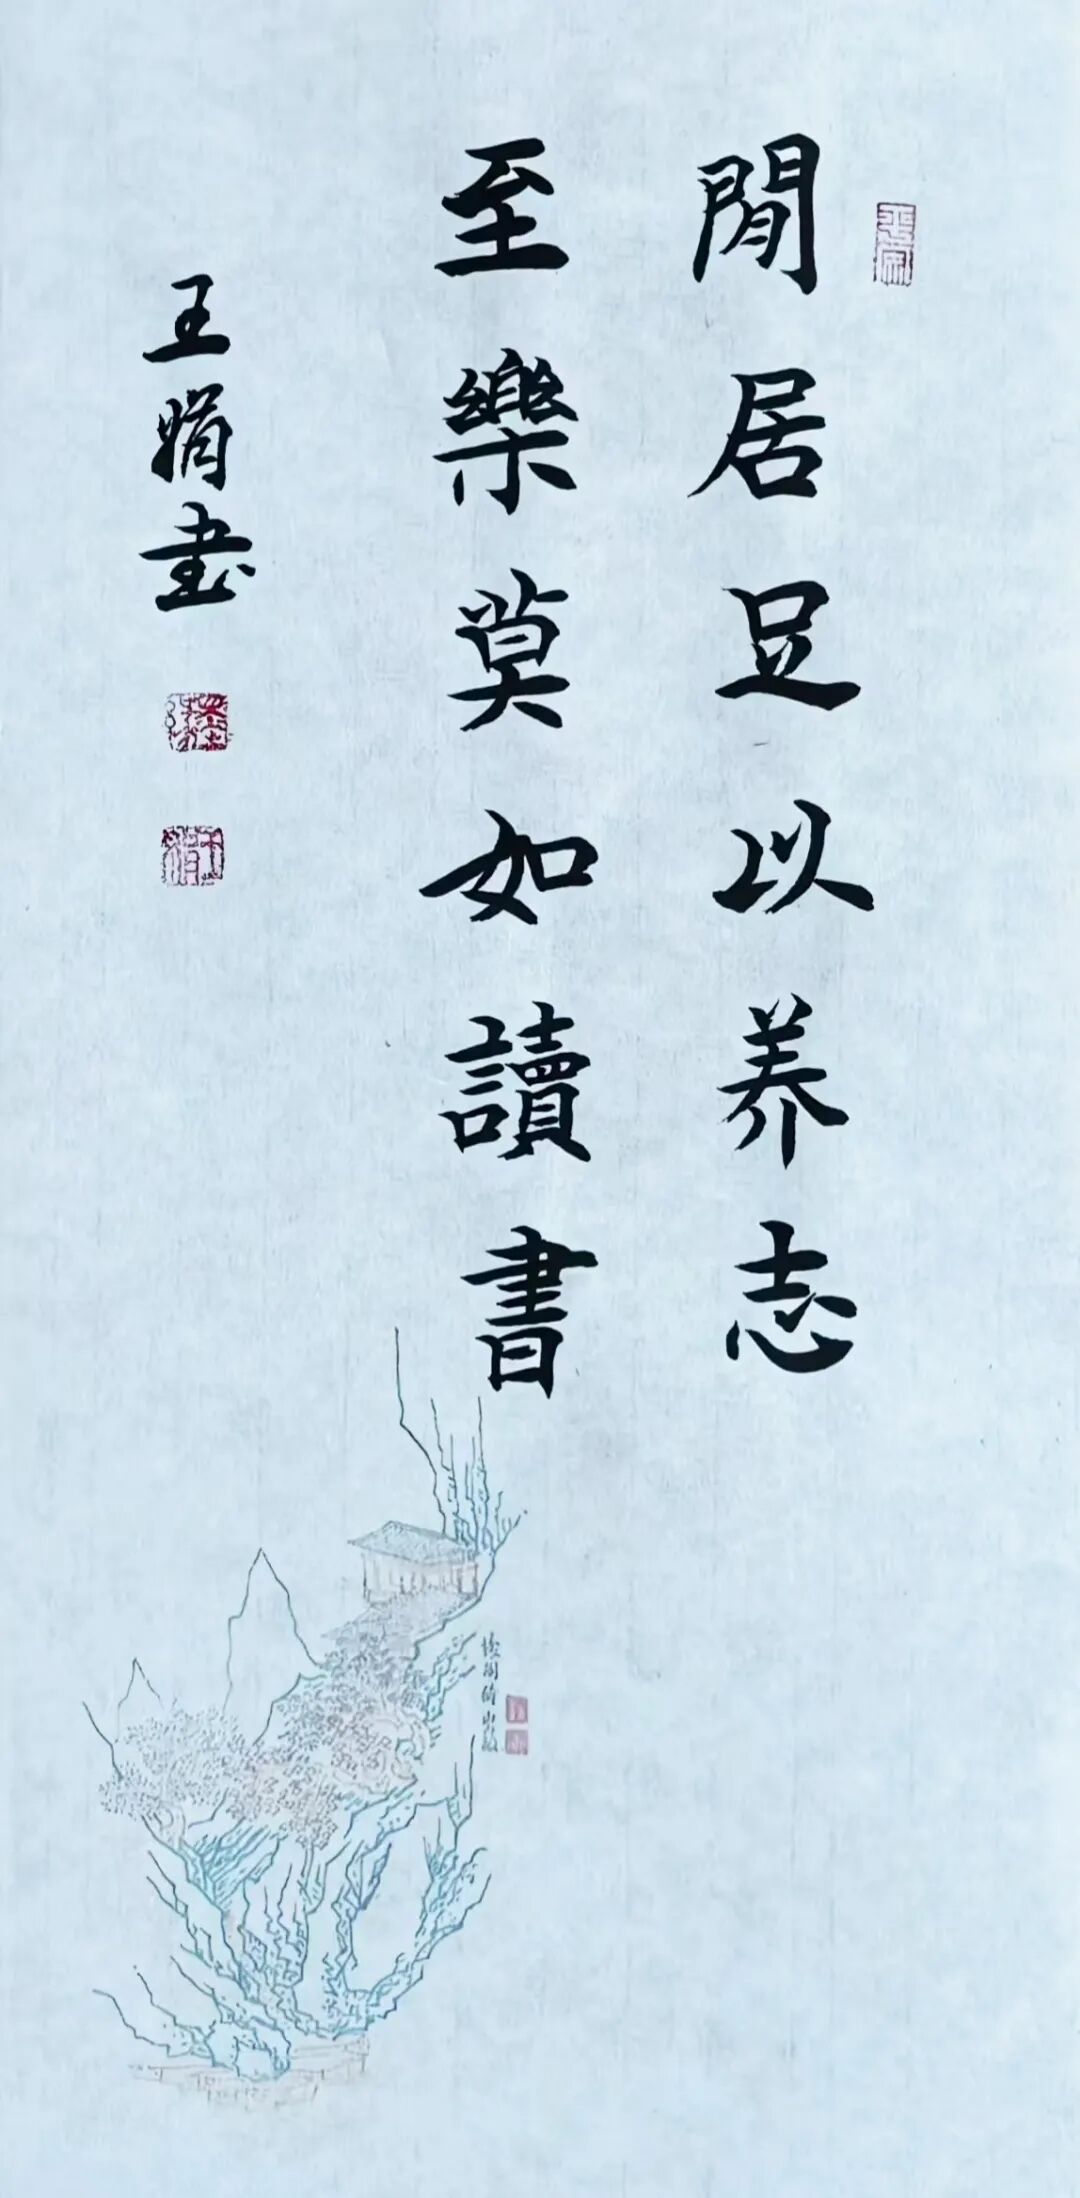 閒居足以养志
至樂莫如讀書
王娟书